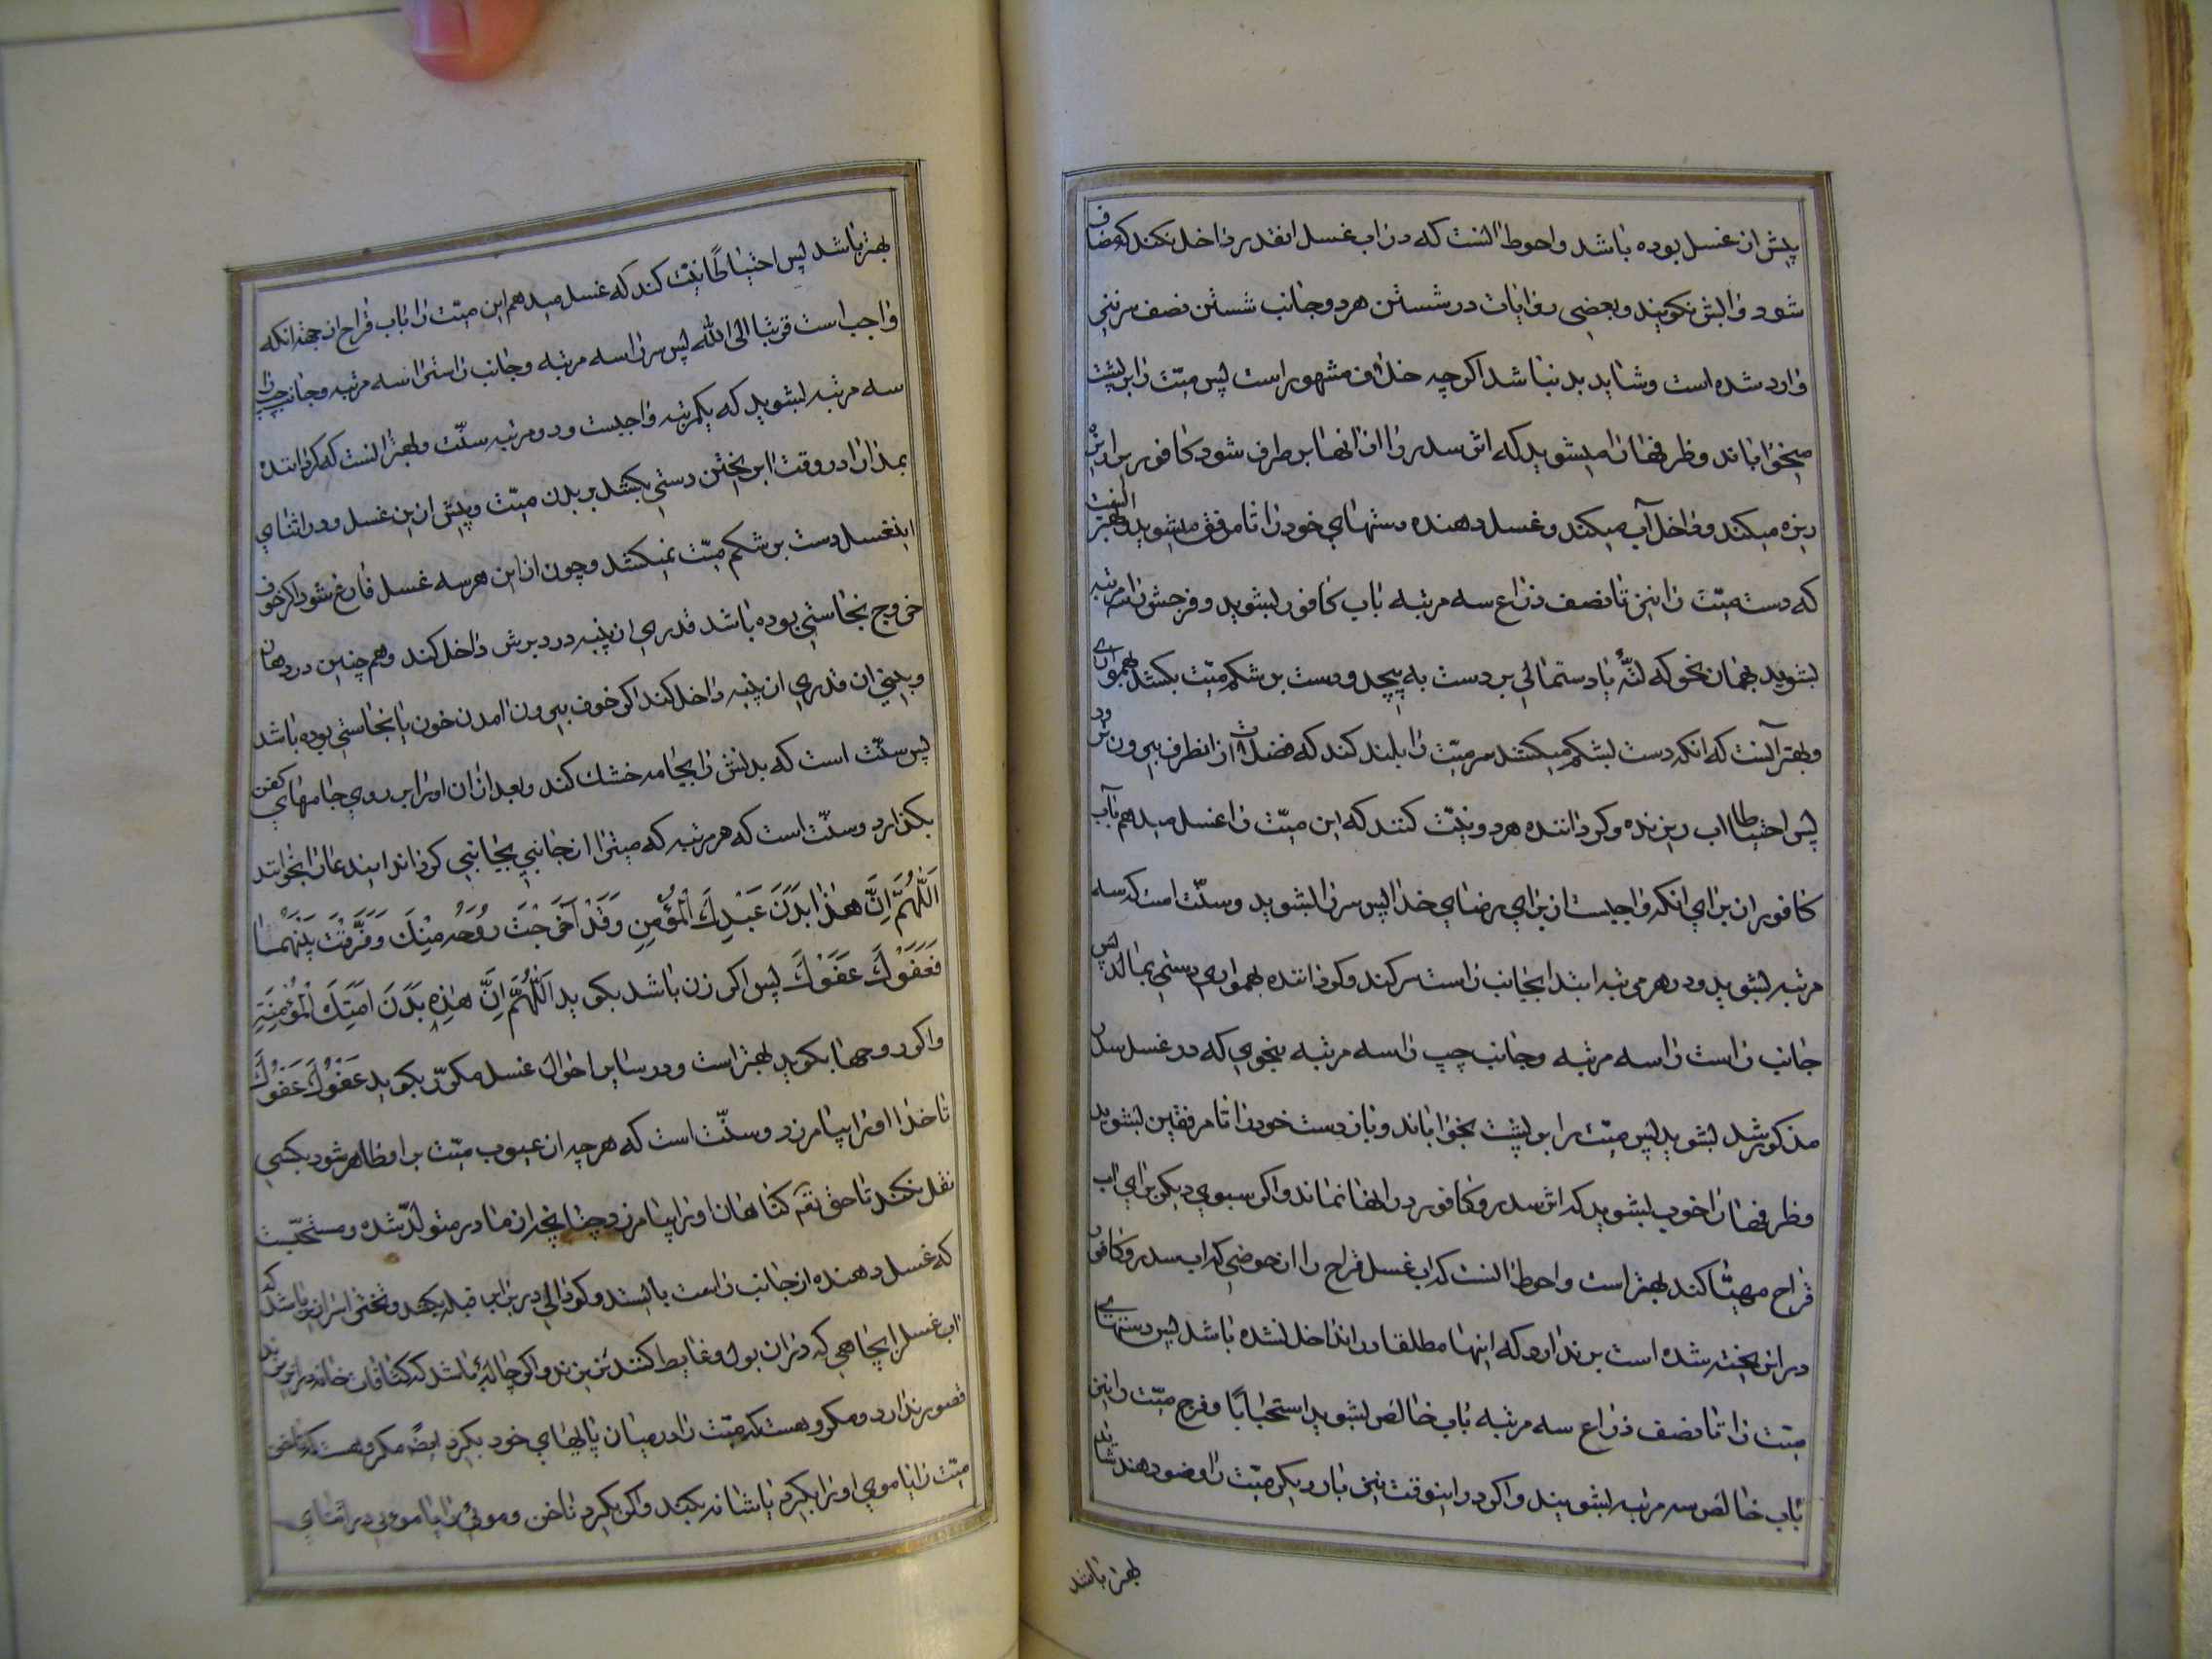 پیش از غسل بوده باشد و احوط انست که در اب غسل انقدر داخل نکند که مضاف
شود و ابش نکویند و بعضی روایات در شستن هر دو جانب شستن نصف سر نیز
وارد شده است و شاید بد نباشد اکرچه خلاف مشهور است پس میت را بر پشت
میخواباند و ظرفها را میشوید که اثر سدر را از انها بر طرف شود کافور را
ریزه میکند و داخل آب میکند و غسل دهنده دستهای خود را تا مرفق میشوید و بهتر انست
که دست میت را نیز تا نصف ذراع سه مرتبه باب کافور بشوید و فرجش را سه مرتبه
بشوید بهمان نحو که لتهٔ یا دستمالی بر دست به پیچد و دست بر شکم میت بکشد بهمواری
و بهتر آنست که انکه دست بشکم میکشد سر میت را بلند کند که فضلات از انطرف بیرون رود
پس احتیاطا اب ریزنده و کرداننده هر دو نیت کنند که این میت را غسل میدهم بآب
کافور از برای انکه واجبست از برای رضای خدا پس سر را بشوید و سنت است که سه
مرتبه بشوید و در هر مرتبه ابتدا بجانب راست سر کند و کرداننده بهمواری دستی بمالد پس
جانب راست را سه مرتبه و جانب چپ را سه مرتبه بنحوی که در غسل سدر
مذکور شد بشوید پس میت را بر پشت بخواباند و باز دست خود را تا مرفقین بشوید
و ظرفها را خوب بشوید که اثر سدر و کافور در انها نماند و اکر سبوی دیکر برای اب
قراح مهیا کند بهتر است و احوط انست که اب غسل قراح را از حوضی که اب سدر و کافور
در ان ریخته شده است بر ندارد که اینها مطلقا در ان داخل نشده باشد پس دستهای
میت را تا نصف ذراع سه مرتبه باب خالص بشوید استحبابًا و فرج میت را نیز
باب خالص سه مرتبه بشویند و اکر در اینوقت نیز بار دیکر میت را وضو دهند شاید
بهتر باشد
بهتر باشد پس احتیاطًا نیت کند که غسل میدهم این میت را باب قراح از جهة انکه
واجب است قربة الی الله پس سر را سه مرتبه و جانب راست را سه مرتبه و جانب چپ را
سه مرتبه بشوید که یکمرتبه واجبست و دو مرتبه سنت و بهتر انست که کرداننده
بمدارا در وقت اب ریختن دستی بکشد بر بدن میت و پیش از این غسل و در اثنای
اینغسل دست بر شکم میت نمیکشد و چون از این هر سه غسل فارغ شود اکر خوف
خروج نجاستی بوده باشد قدری از پنبه در دبرش داخل کند و هم چنین در دهان
و بینی ان قدری از پنبه داخل کند اکر خوف بیرون امدن خون یا نجاستی بوده باشد
پس سنت است که بدنش را بجامه خشك کند و بعد از ان او را بر روی جامهای کفن
بکذارد و سنت است که هر مرتبه که میت را از جانبی بجانبی کرداند ایندعا را بخواند
اَللّٰهُمَّ اِنَّ هٰذَا بَدَنُ عَبْدِكَ الْمُؤْمِنِ وَقَدْ اَخْرَجْتَ رُوحَهُ مِنْهُ وَفَرَّقْتَ بَيْنَهُمَا
فَعَفْوَكَ عَفْوَكَ پس اکر زن باشد بکوید اَللّٰهُمَّ اِنَّ هٰذِهِ بَدَنُ اَمَتِكَ الْمُؤْمِنَةِ
و اکر روحها بکوید بهتر است و در سایر احوال غسل مکرّر بکوید عَفْوَكَ عَفْوَكَ
تا خدا او را بیامرزد و سنت است که هر چه از عیوب میت بر او ظاهر شود بکسی
نقل نکند تا حق تعم کناهان او را بیامرزد چنانچه از مادر متولد شده و مستحبست
که غسل دهنده از جانب راست بایستد و کودالی در برابر قبله بکند
اب غسل بچاهی که در ان بول و غایط کنند نریزند و اکر چالهٔ باشد که کثافات خانه در ان ریزند
قصور ندارد و مکروهست که میت را در میان پایهای خود بکیرد ایضً مکروهست که ناخن
میت را یا موی او را بکیرد یا شانه بکند و اکر بکیرد ناخن و موئی را یا موئی در اثنای